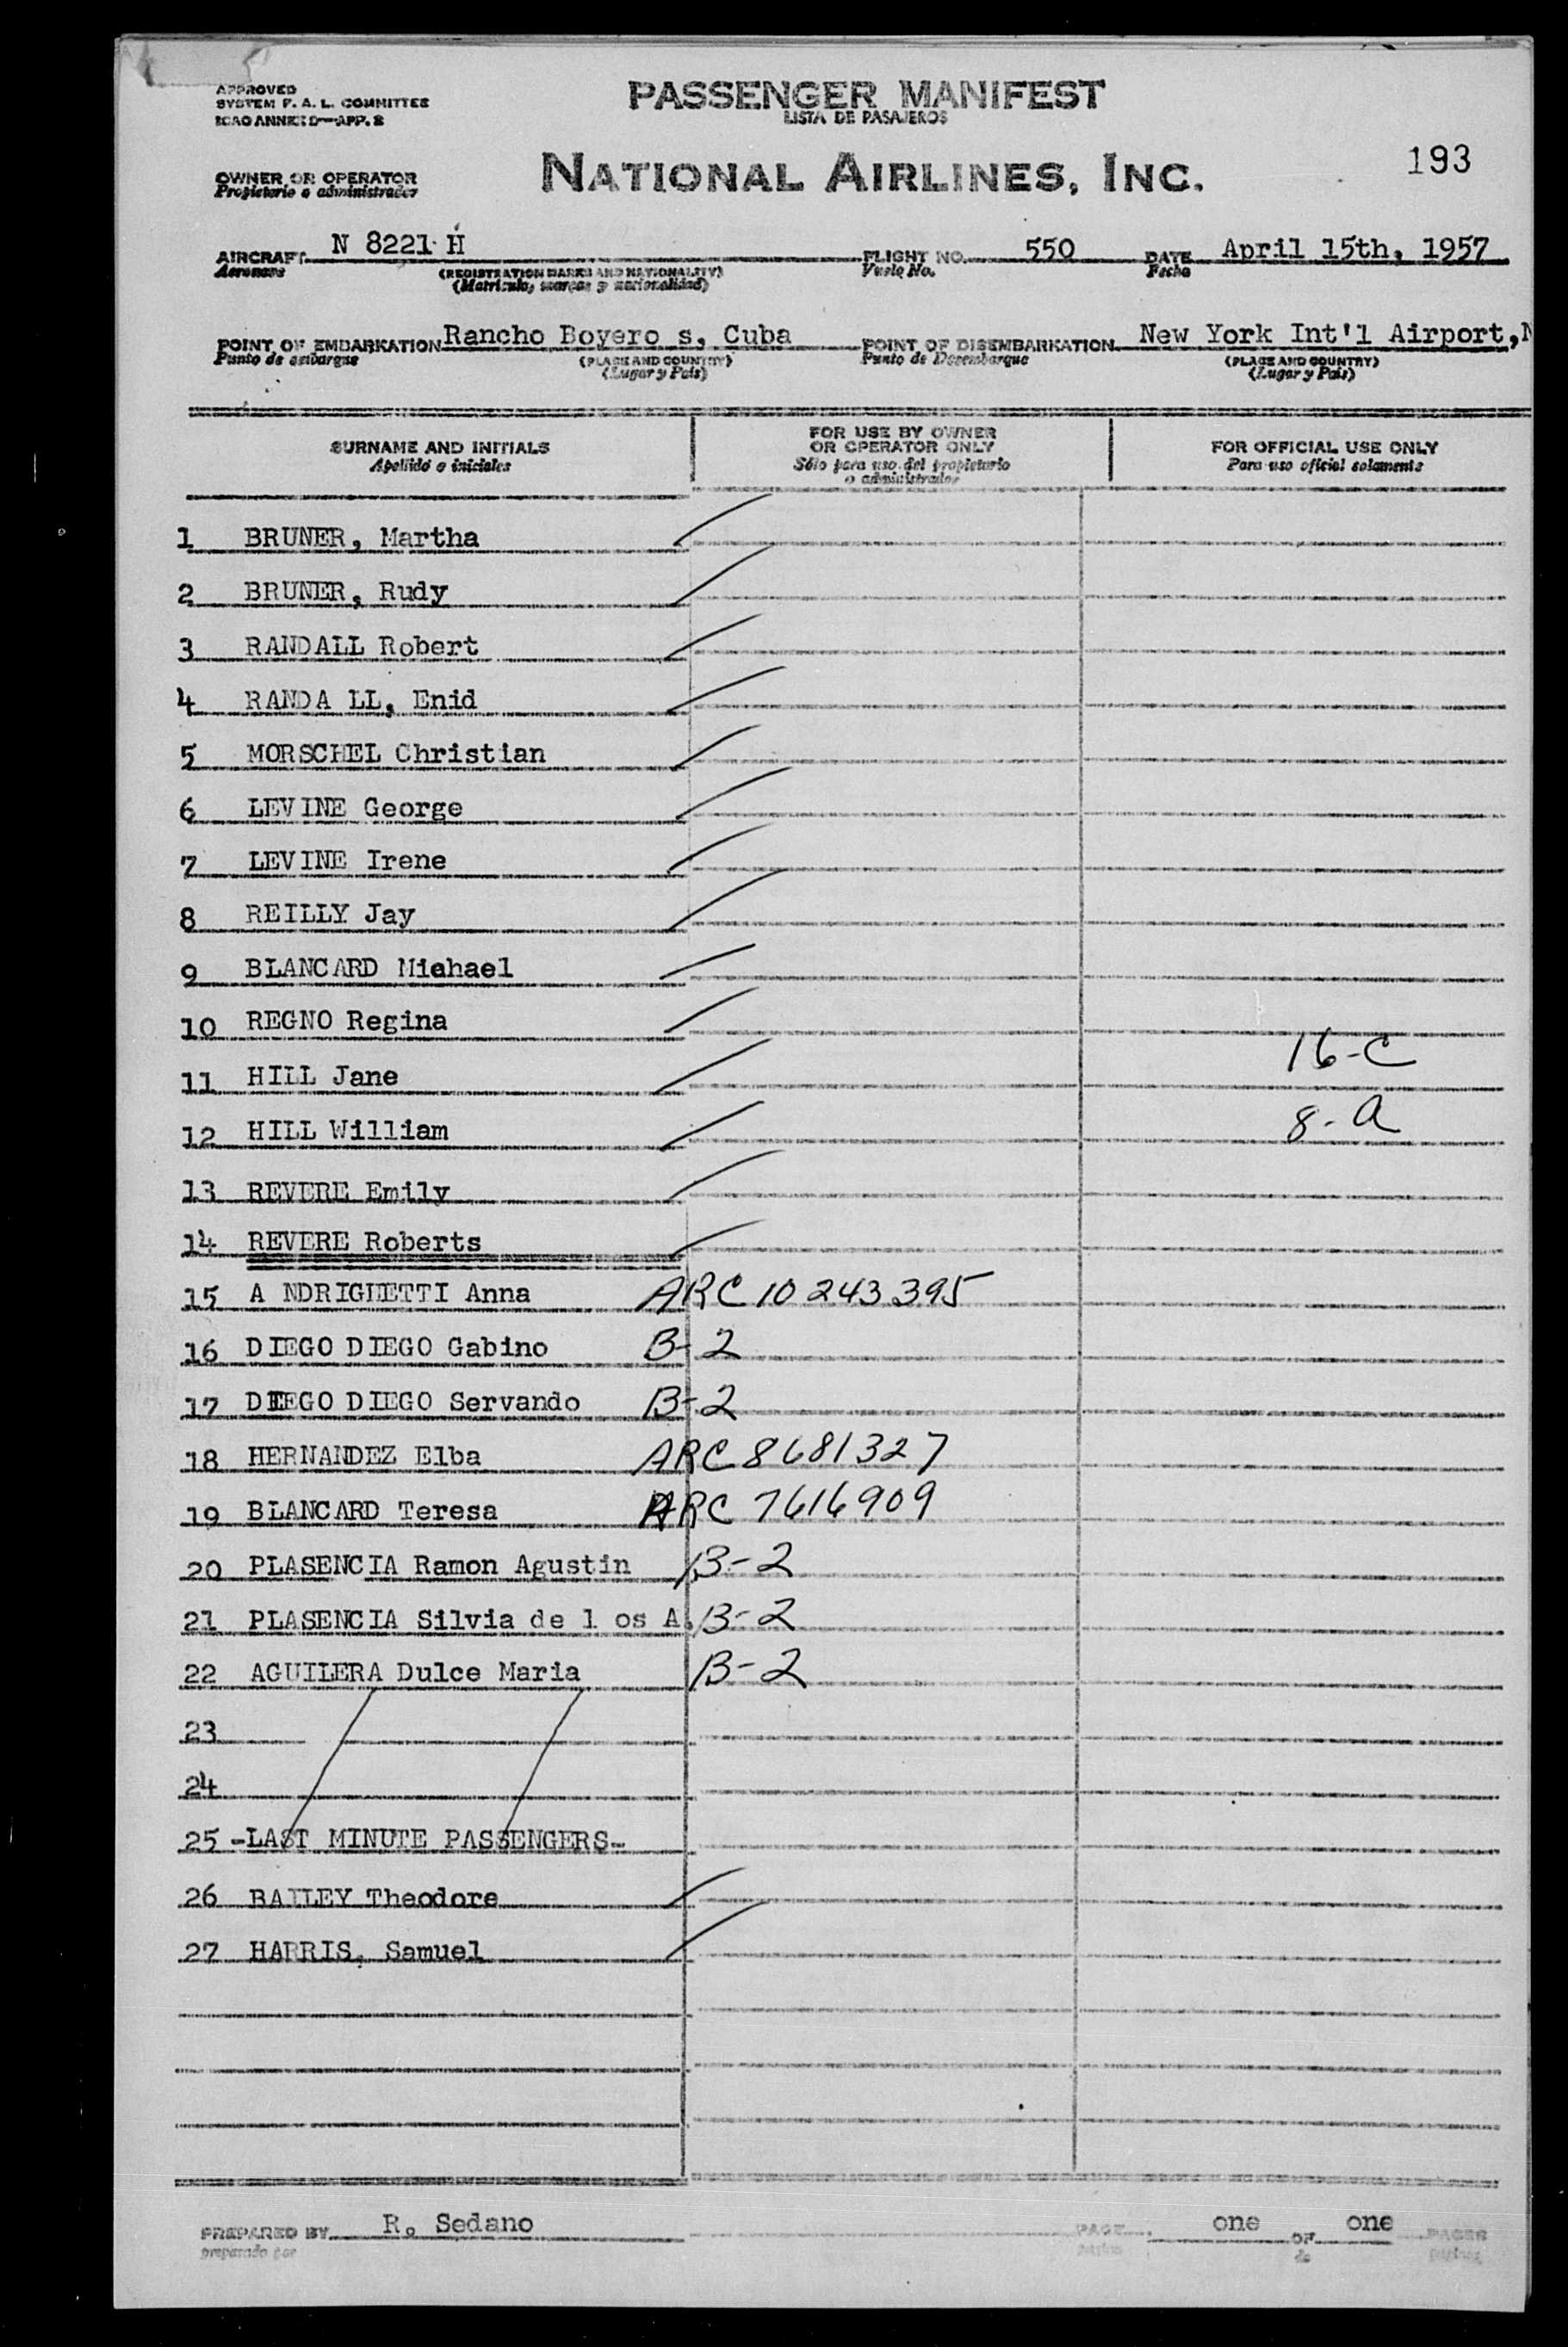 APPROVED
SYSTEM F. A. L. COMMITTEE
ICAO ANNEX 9—APP. 2
PASSENGER MANIFEST
LISTA DE PASAJEROS
193
OWNER OR OPERATOR
Propietario o administrador
NATIONAL AIRLINES, INC.
AIRCRAFT N 8221 H FLIGHT NO. 550 DATE April 15th, 1957
Aeronave (REGISTRATION MARKS AND NATIONALITY) Vuelo No. Fecha
(Matricula, marcas y nacionalidad)
POINT OF EMBARKATION Rancho Boyero s, Cuba POINT OF DISEMBARKATION New York Int'l Airport,N
Punto de embarque (PLACE AND COUNTRY) Punto de Desembarque (PLACE AND COUNTRY)
(Lugar y Pais) (Lugar y Pais)
SURNAME AND INITIALS
Apellido e iniciales
FOR USE BY OWNER
OR OPERATOR ONLY
Sólo para uso del propietario
o administrador
FOR OFFICIAL USE ONLY
Para uso oficial solamente
1 BRUNER, Martha
2 BRUNER, Rudy
3 RANDALL Robert
4 RANDA LL, Enid
5 MORSCHEL Christian
6 LEVINE George
7 LEVINE Irene
8 REILLY Jay
9 BLANCARD Miehael
10 REGNO Regina
11 HILL Jane 16-C
12 HILL William 8-A
13 REVERE Emily
14 REVERE Roberts
15 A NDRIGHETTI Anna ARC 10 243 395
16 DIEGO DIEGO Gabino B-2
17 DIEGO DIEGO Servando B-2
18 HERNANDEZ Elba ARC 8681327
19 BLANCARD Teresa ARC 7616909
20 PLASENCIA Ramon Agustin B-2
21 PLASENCIA Silvia de l os A. B-2
22 AGUILERA Dulce Maria B-2
23
24
25 -LAST MINUTE PASSENGERS-
26 BAILEY Theodore
27 HARRIS, Samuel
PREPARED BY R. Sedano PAGE one OF one PAGES
preparado por página de páginas